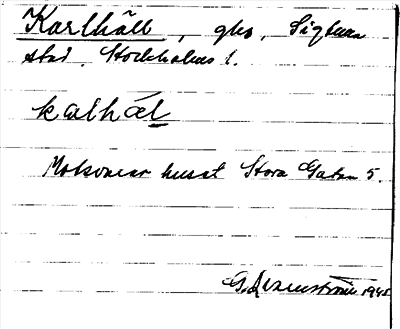 Karlhäll, gho, Sigtuna
stad, Stockholms l.
kalhäl
Motsvarar huset Stora Gatan 5.
1945